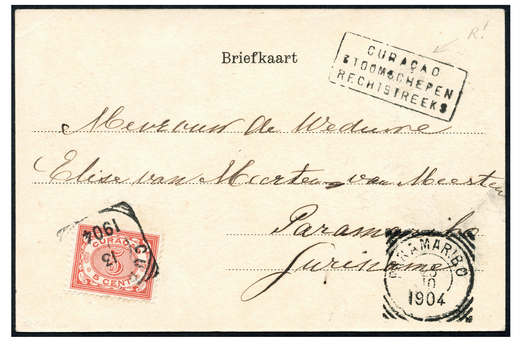 R!
CURAÇAO
STOOMSCHEPEN
RECHTSTREEKS
Briefkaart
Mevrouw de Weduwe
Elise van Meerten-van Meerten
Paramaribo
Suriname
1904
13
CURAÇAO
5
CENT
PARAMARIBO
1904